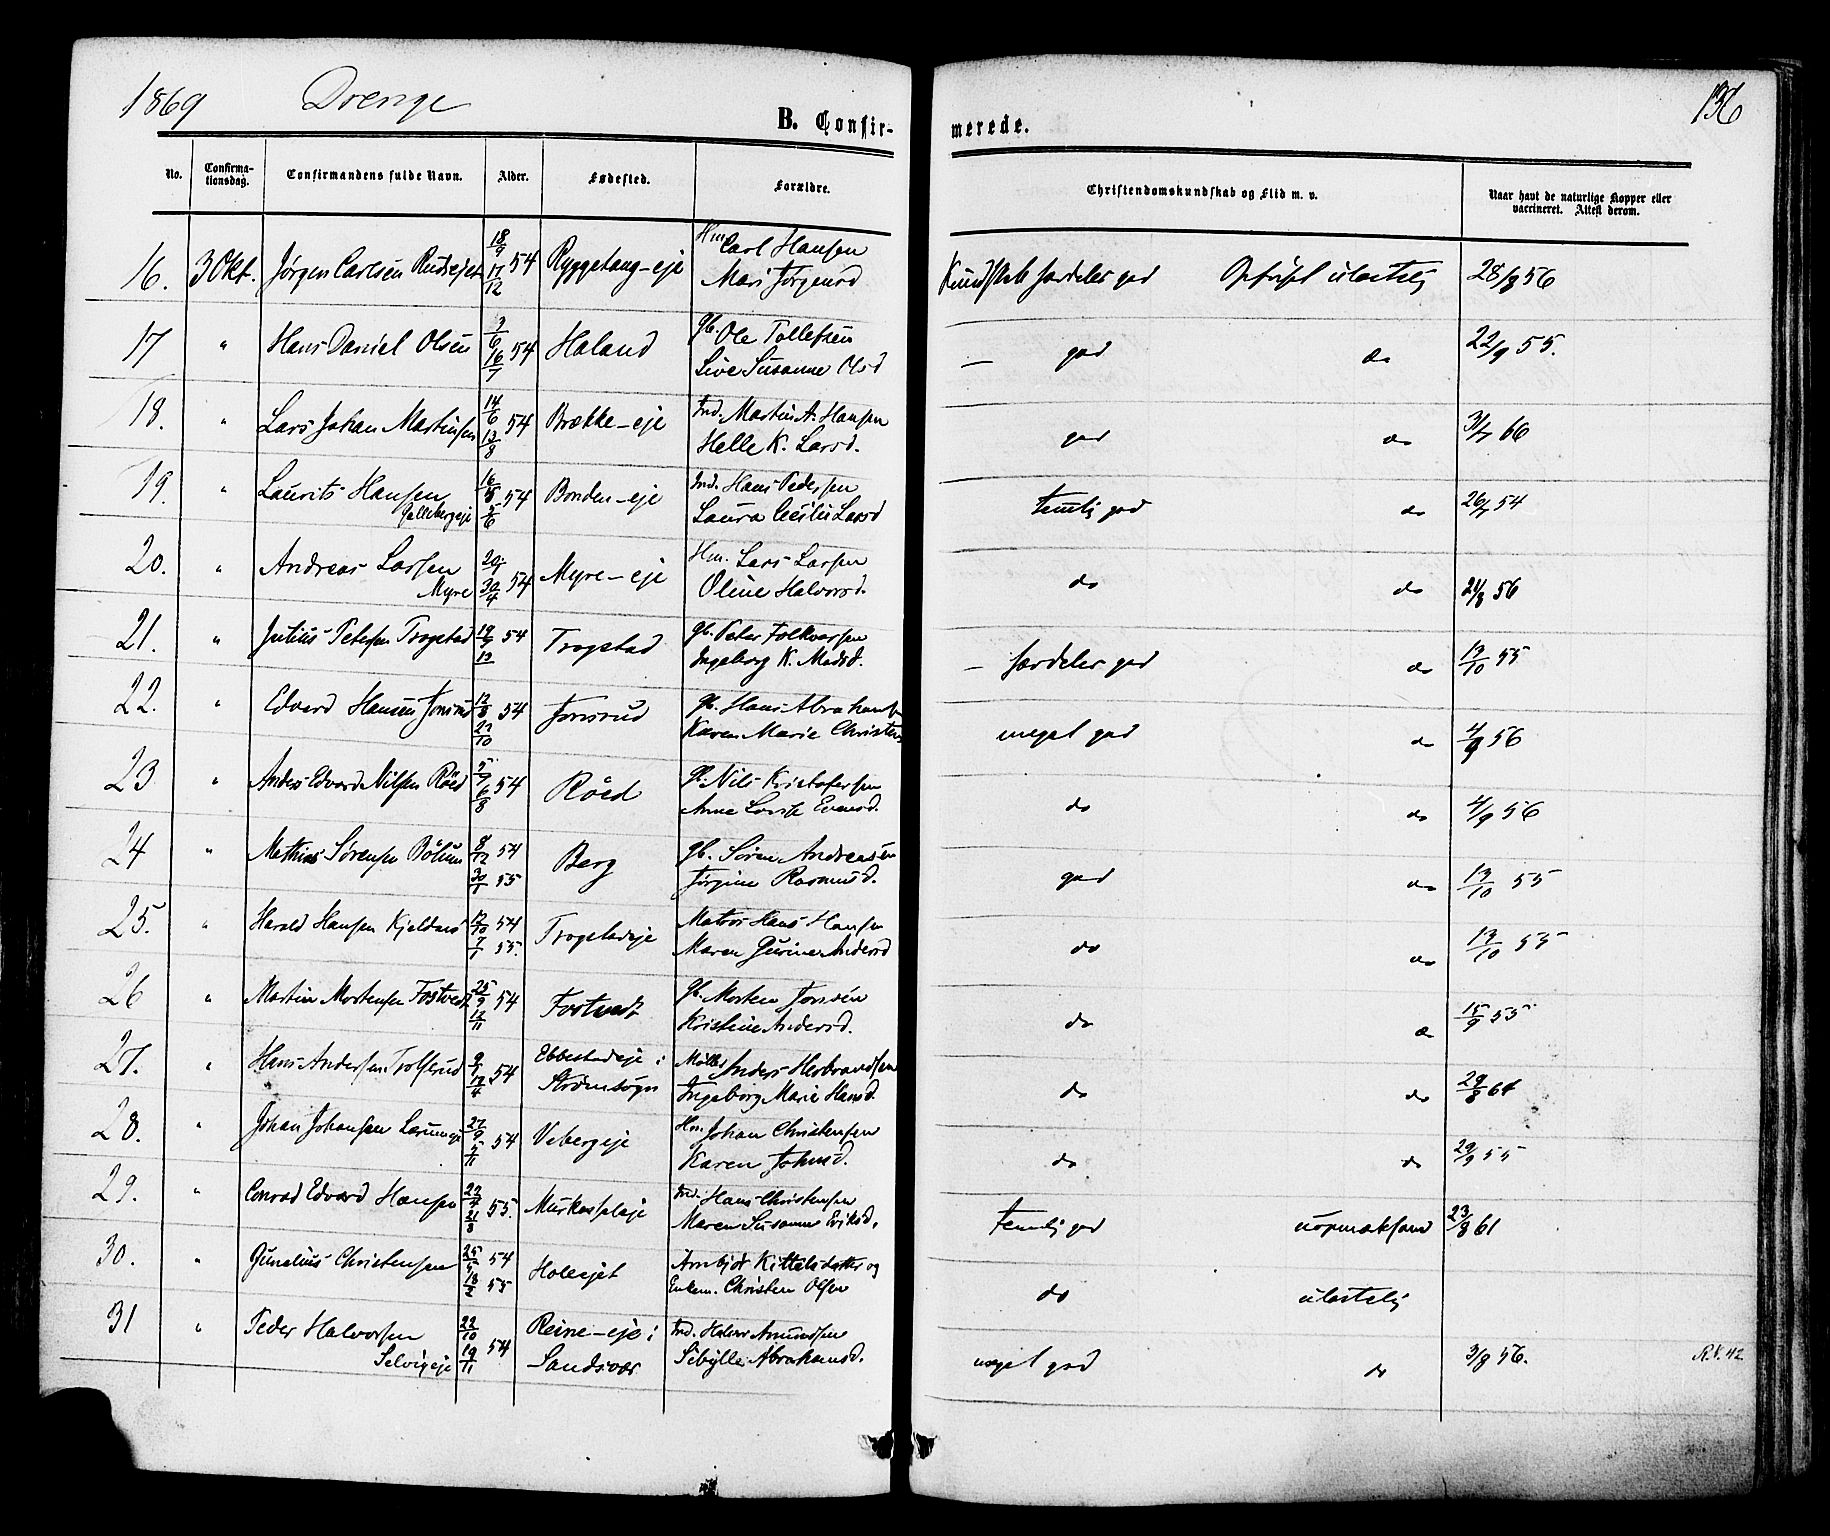 1869 Drenge
136
B. Confir- merede.
No. Confirma-tionsdag. Confirmandens fulde Navn. Alder. Fødested. Forældre. Christendomskundskab og Flid m. v. Naar havt de naturlige Kopper eller vaccineret. Attest derom.
16. 3 Okt. Jørgen Carlsen Rudsejet 18/9 54 17/12 Ryggetang-eje Hm Carl Hansen Mari Jørgensd Kundskab særdeles god Opførsel ulastelig 28/8 56
17 " Hans Daniel Olsen 3/6 54 16/7 Haland gb. Ole Tollefsen Live Susanne Olsd — god do 22/9 55.
18. " Lars Johan Martinsen 14/6 54 13/8 Brække-eje Ind. Martin A. Hansen Helle K. Larsd. god do 31/7 66
19. " Laurits Hansen 16/5 54 5/6 Bonden-eje Ind. Hans Pedersen Laura Cecilie Larsd temlig god do 26/7 54
20. " Andreas Larsen Myre 20/1 54 30/4 Myre-eje Hm. Lars Larsen Oline Halvorsd. do do 21/8 56
21. " Julius Petersen Trogstad 54 Trogstad gb. Peter Folkvarsen Ingeborg K. Madsd. — særdeles god do 13/10 55
22. " Edvard Hansen Jonsrud 12/8 54 22/10 Jonsrud gb. Hans Abrahams Karen Marie Christens meget god do 4/9 56
23 " Anders Edvard Nilsen Röed 5/7 54 6/8 Röed gb. Nils Kristofersen Anne Lovise Evensd. do do 4/9 56
24 " Mathias Sørensen 8/12 54 30/1 55 Berg gb. Sören Andreasen Jørgine Rasmusd. god do 13/10 55
25. " Harald Hansen Kjeldaas 12/10 54 7/1 55. Trogstadeje Matros Hans Hansen Maren Gurine Andersd do do 13/10 55
26 " Martin Mortensen Fostvedt 25/9 54 12/11 Fostvedt gb. Morten Jonsen Kristine Andersd. do do 15/9 55
27. " Hans Andersen Trolsrud 9/1 54 17/4 Ebbestadeje i Strömsogn Møller Anders Herbrandsen Ingeborg Marie Hansd. do do 29/8 64
28. " Johan Johansen 27/9 54 5/11 Vebergeje Hm. Johan Christensen Karen Johnsd. do do 29/9 55
29. " Conrad Edvard Hansen 22/4 55. 21/8 Ind. Hans Christensen Maren Susanne Eriksd. temlig god uopmærksom 23/8 61
30. " Gunelius Christensen 54 18/2 55 Holeejet Anbjør Kittelsdatter og Enkem. Christen Olsen do ulastelig
31 " Peder Halvorsen Selvigeje 22/10 54 19/11 Reine-eje i Sandsvær Ind. Halvor Amundsen Sibylle Abrahamsd. meget god do 3/8 56. N.V. 42